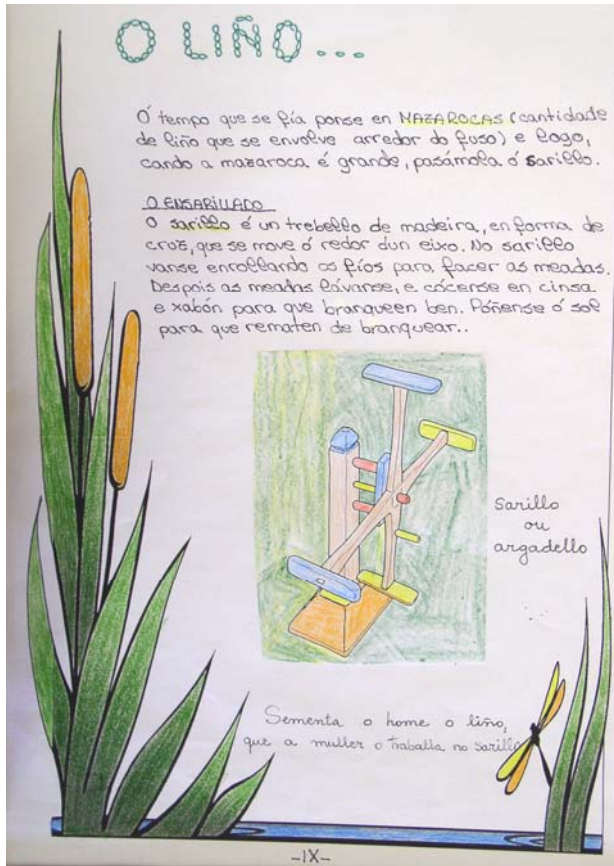 O LIÑO...
Ó tempo que se fía ponse en MAZAROCAS (cantidade
de liño que se envolve arredor do fuso) e logo,
cando a mazaroca é grande, pasámola ó sarillo.
O ENSARILLADO
O sarillo é un trebello de madeira, en forma de
cruz, que se move ó redor dun eixo. No sarillo
vanse enrollando os fíos para facer as meadas.
Despois as meadas lávanse, e cócense en cinsa
e xabón para que branqueen ben. Póñense ó sol
para que rematen de branquear..
Sarillo
ou
argadello
Sementa o home o liño,
que a muller o traballa no sarillo
-IX-